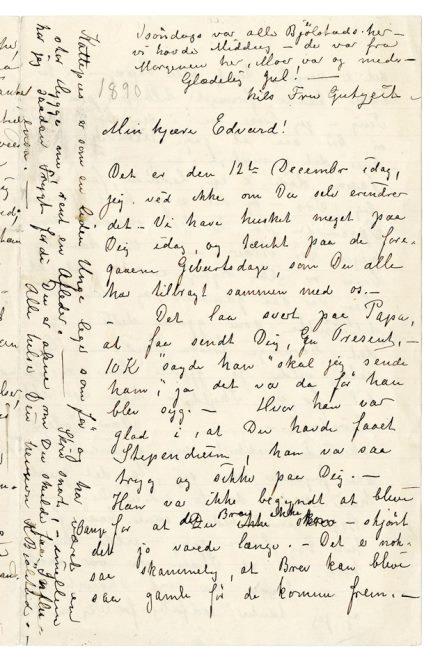 Isöndags var alle Bjölstads her —
vi havde Middag — de var fra
Morgenen her, Moer var og med —
Glædelig Jul! —
hils Fru Gutzeit —
1890
Min kjære Edvard!
Det er den 12te December idag,
jeg véd ikke om Du selv erindrer
det. Vi have husket meget paa
Dig idag, og tænkt paa de fore-
gaaene Geburtsdage, som Du alle
har tilbragt sammen med os. —
Det laa svert paa Papa,
at faa sendt Dig, en Present, —
10 K "sagde han "skal jeg sende
ham", ja det var da för han
blev syg. — Hvor han var
glad i, at Du havde faaet
Stipendium, han var saa
tryg og sikker paa Dig. —
Han var ikke begyndt at blive
bange for at der Brev ikke — skjönt
det jo varede længe — Det er nok-
saa skammelig, at Brev kan blive
saa gamle för de komme frem. —
Kattepus er som en liden Unge leger som för og har
Skriv snart, — imellem
har jeg saadan Frygt fordi Du er alene om Du skulde faa Influ-
enza. — Alle hilse Din hengivne K Bjölstad. —